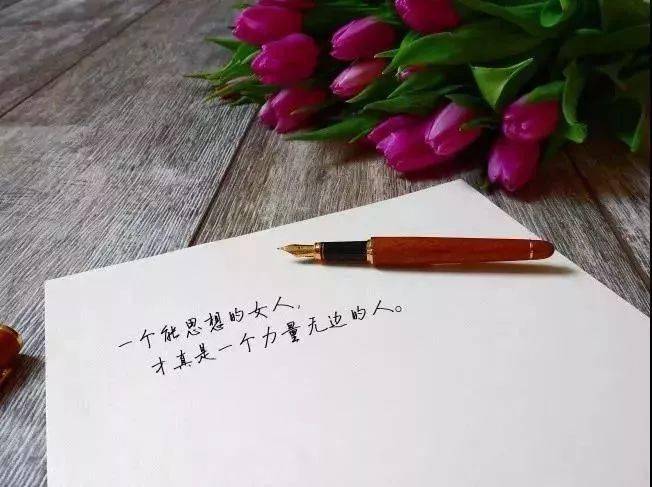 一个能思想的女人，
才真是一个力量无边的人。